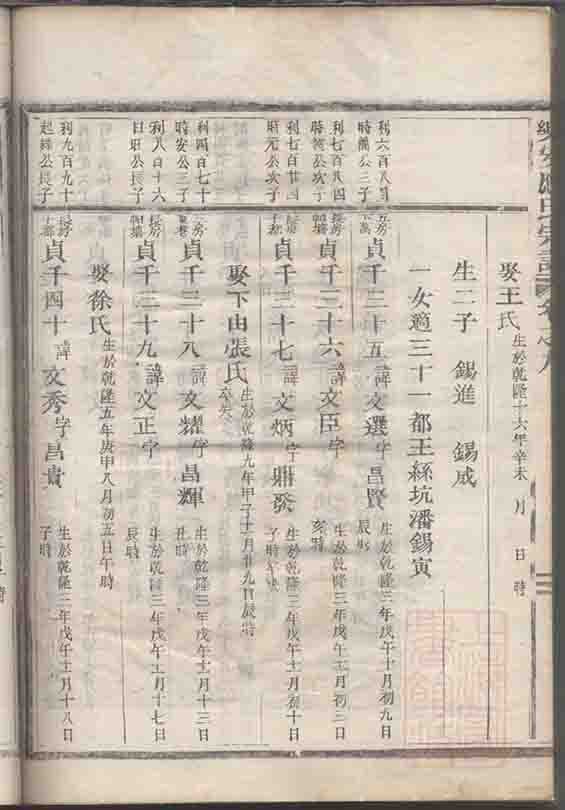 娶王氏 生於乾隆十六年辛未 月 日 時
生二子 錫進 錫咸
一女適三十一都王絲坑潘錫寅
時 公三子 貞千三十五 諱文選 字昌賢 生於乾隆三年戊午十月初九日辰時
利七百八四 時 公次子 貞千三十六 諱文臣 字 生於乾隆三年戊午 月初三日亥時
利七百廿四 時元公次子 貞千三十七 諱文炳 字鼎發 生於乾隆三年戊午 月初十日子時
娶下由張氏 生於乾隆九年甲子十一月廿九日辰時
利四百七十 時安公三子 貞千三十八 諱文耀 字昌輝 生於乾隆三年戊午 月十三日 時
利八百十六 日旺公長子 貞千三十九 諱文正 字 生於乾隆三年戊午 月十七日辰時
娶徐氏 生於乾隆五年庚申八月初五日午時
利九百九十 起 公長子 貞千四十 諱文秀 字昌貴 生於乾隆三年戊午 月十八日子時